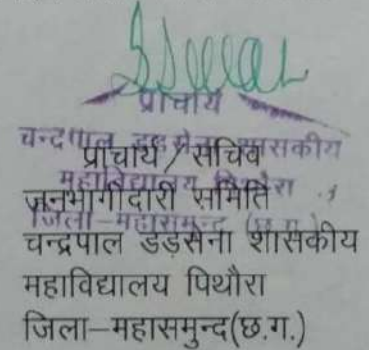 प्राचार्य
चन्द्रपाल डड़सेना शासकीय
महाविद्यालय पिथौरा
जिला-महासमुन्द (छ.ग.)
प्राचार्य / सचिव
जनभागीदारी समिति
चन्द्रपाल डड़सेना शासकीय
महाविद्यालय पिथौरा
जिला-महासमुन्द(छ.ग.)